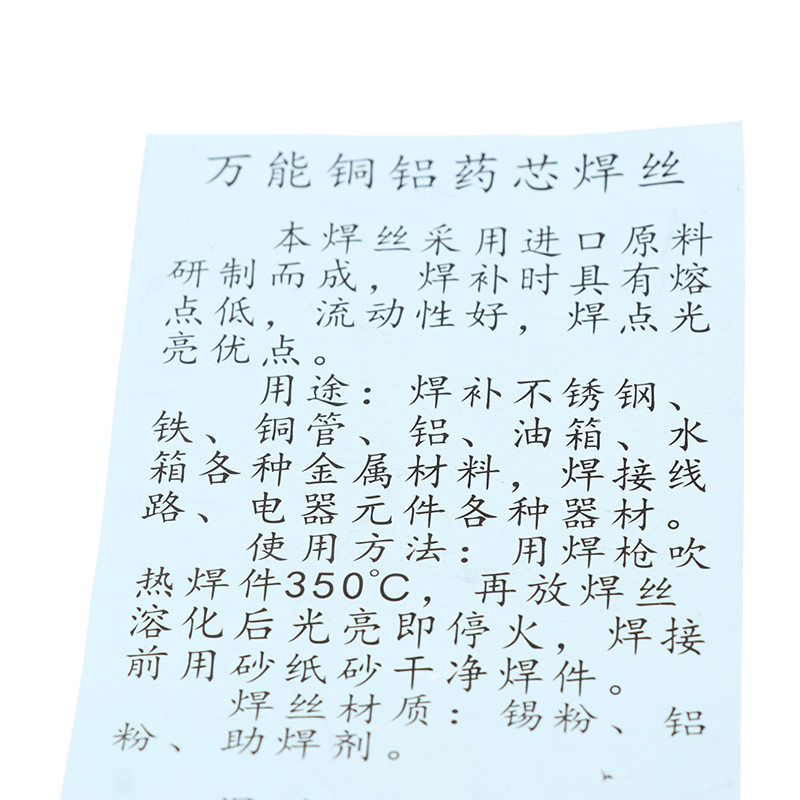 万能铜铝药芯焊丝
本焊丝采用进口原料
研制而成，焊补时具有熔
点低，流动性好，焊点光
亮优点。
用途：焊补不锈钢、
铁、铜管、铝、油箱、水
箱各种金属材料，焊接线
路、电器元件各种器材。
使用方法：用焊枪吹
热焊件350℃，再放焊丝
溶化后光亮即停火，焊接
前用砂纸砂干净焊件。
焊丝材质：锡粉、铝
粉、助焊剂。